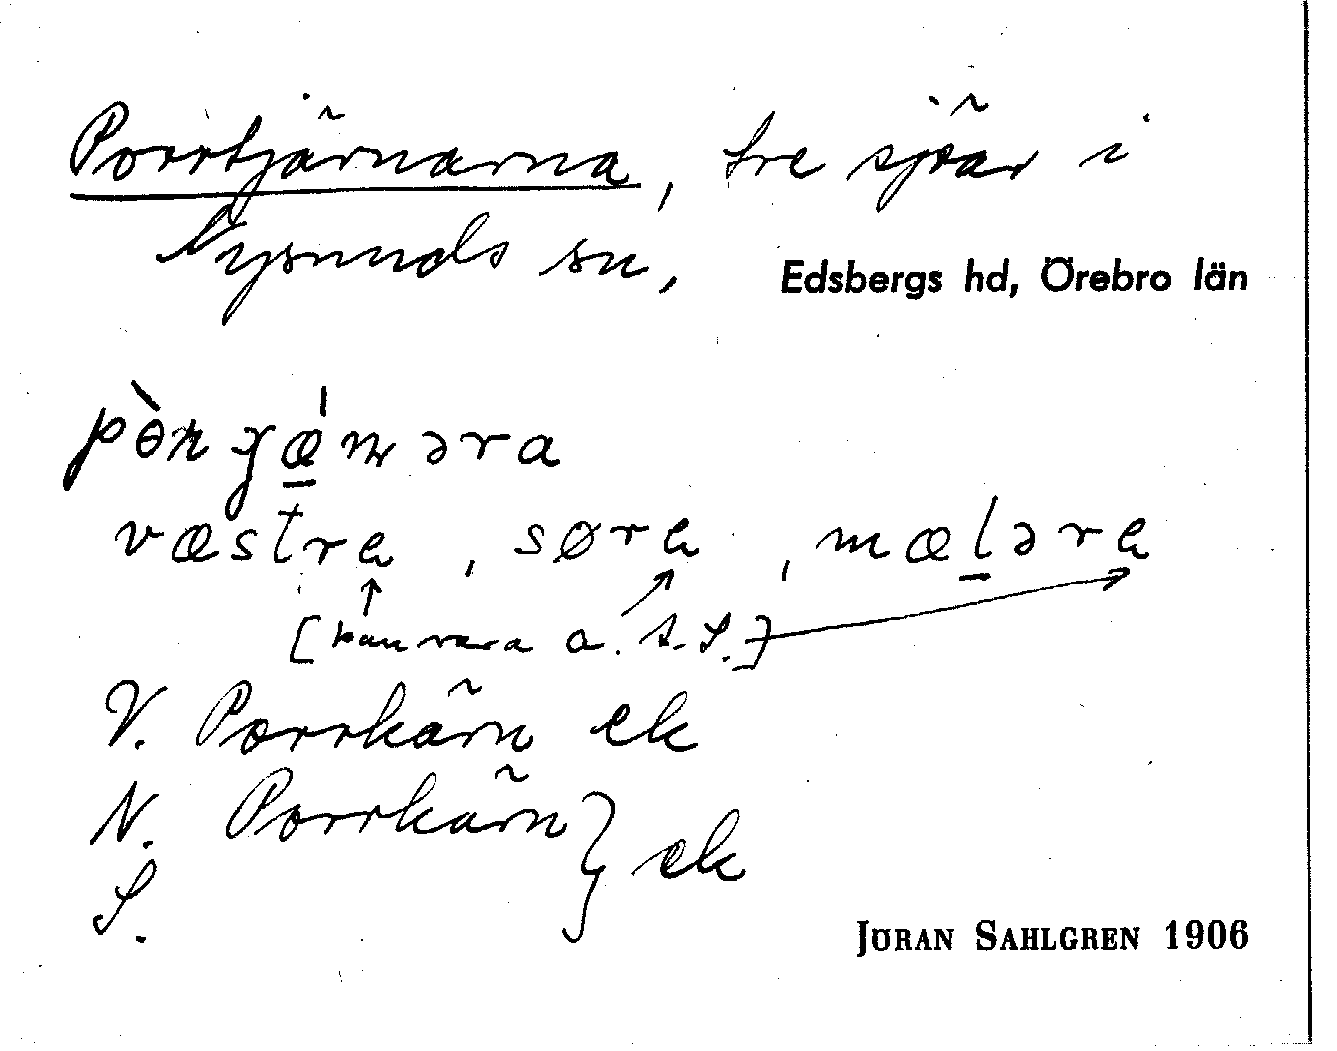 Porrtjärnarna, tre sjöar i
Nysunds sn, Edsbergs hd, Örebro län
væstra, søra, mælǝra
[kan vara a. J.S.]
V. Porrkärn ek
N. Porrkärn } ek
S.
JÖRAN SAHLGREN 1906